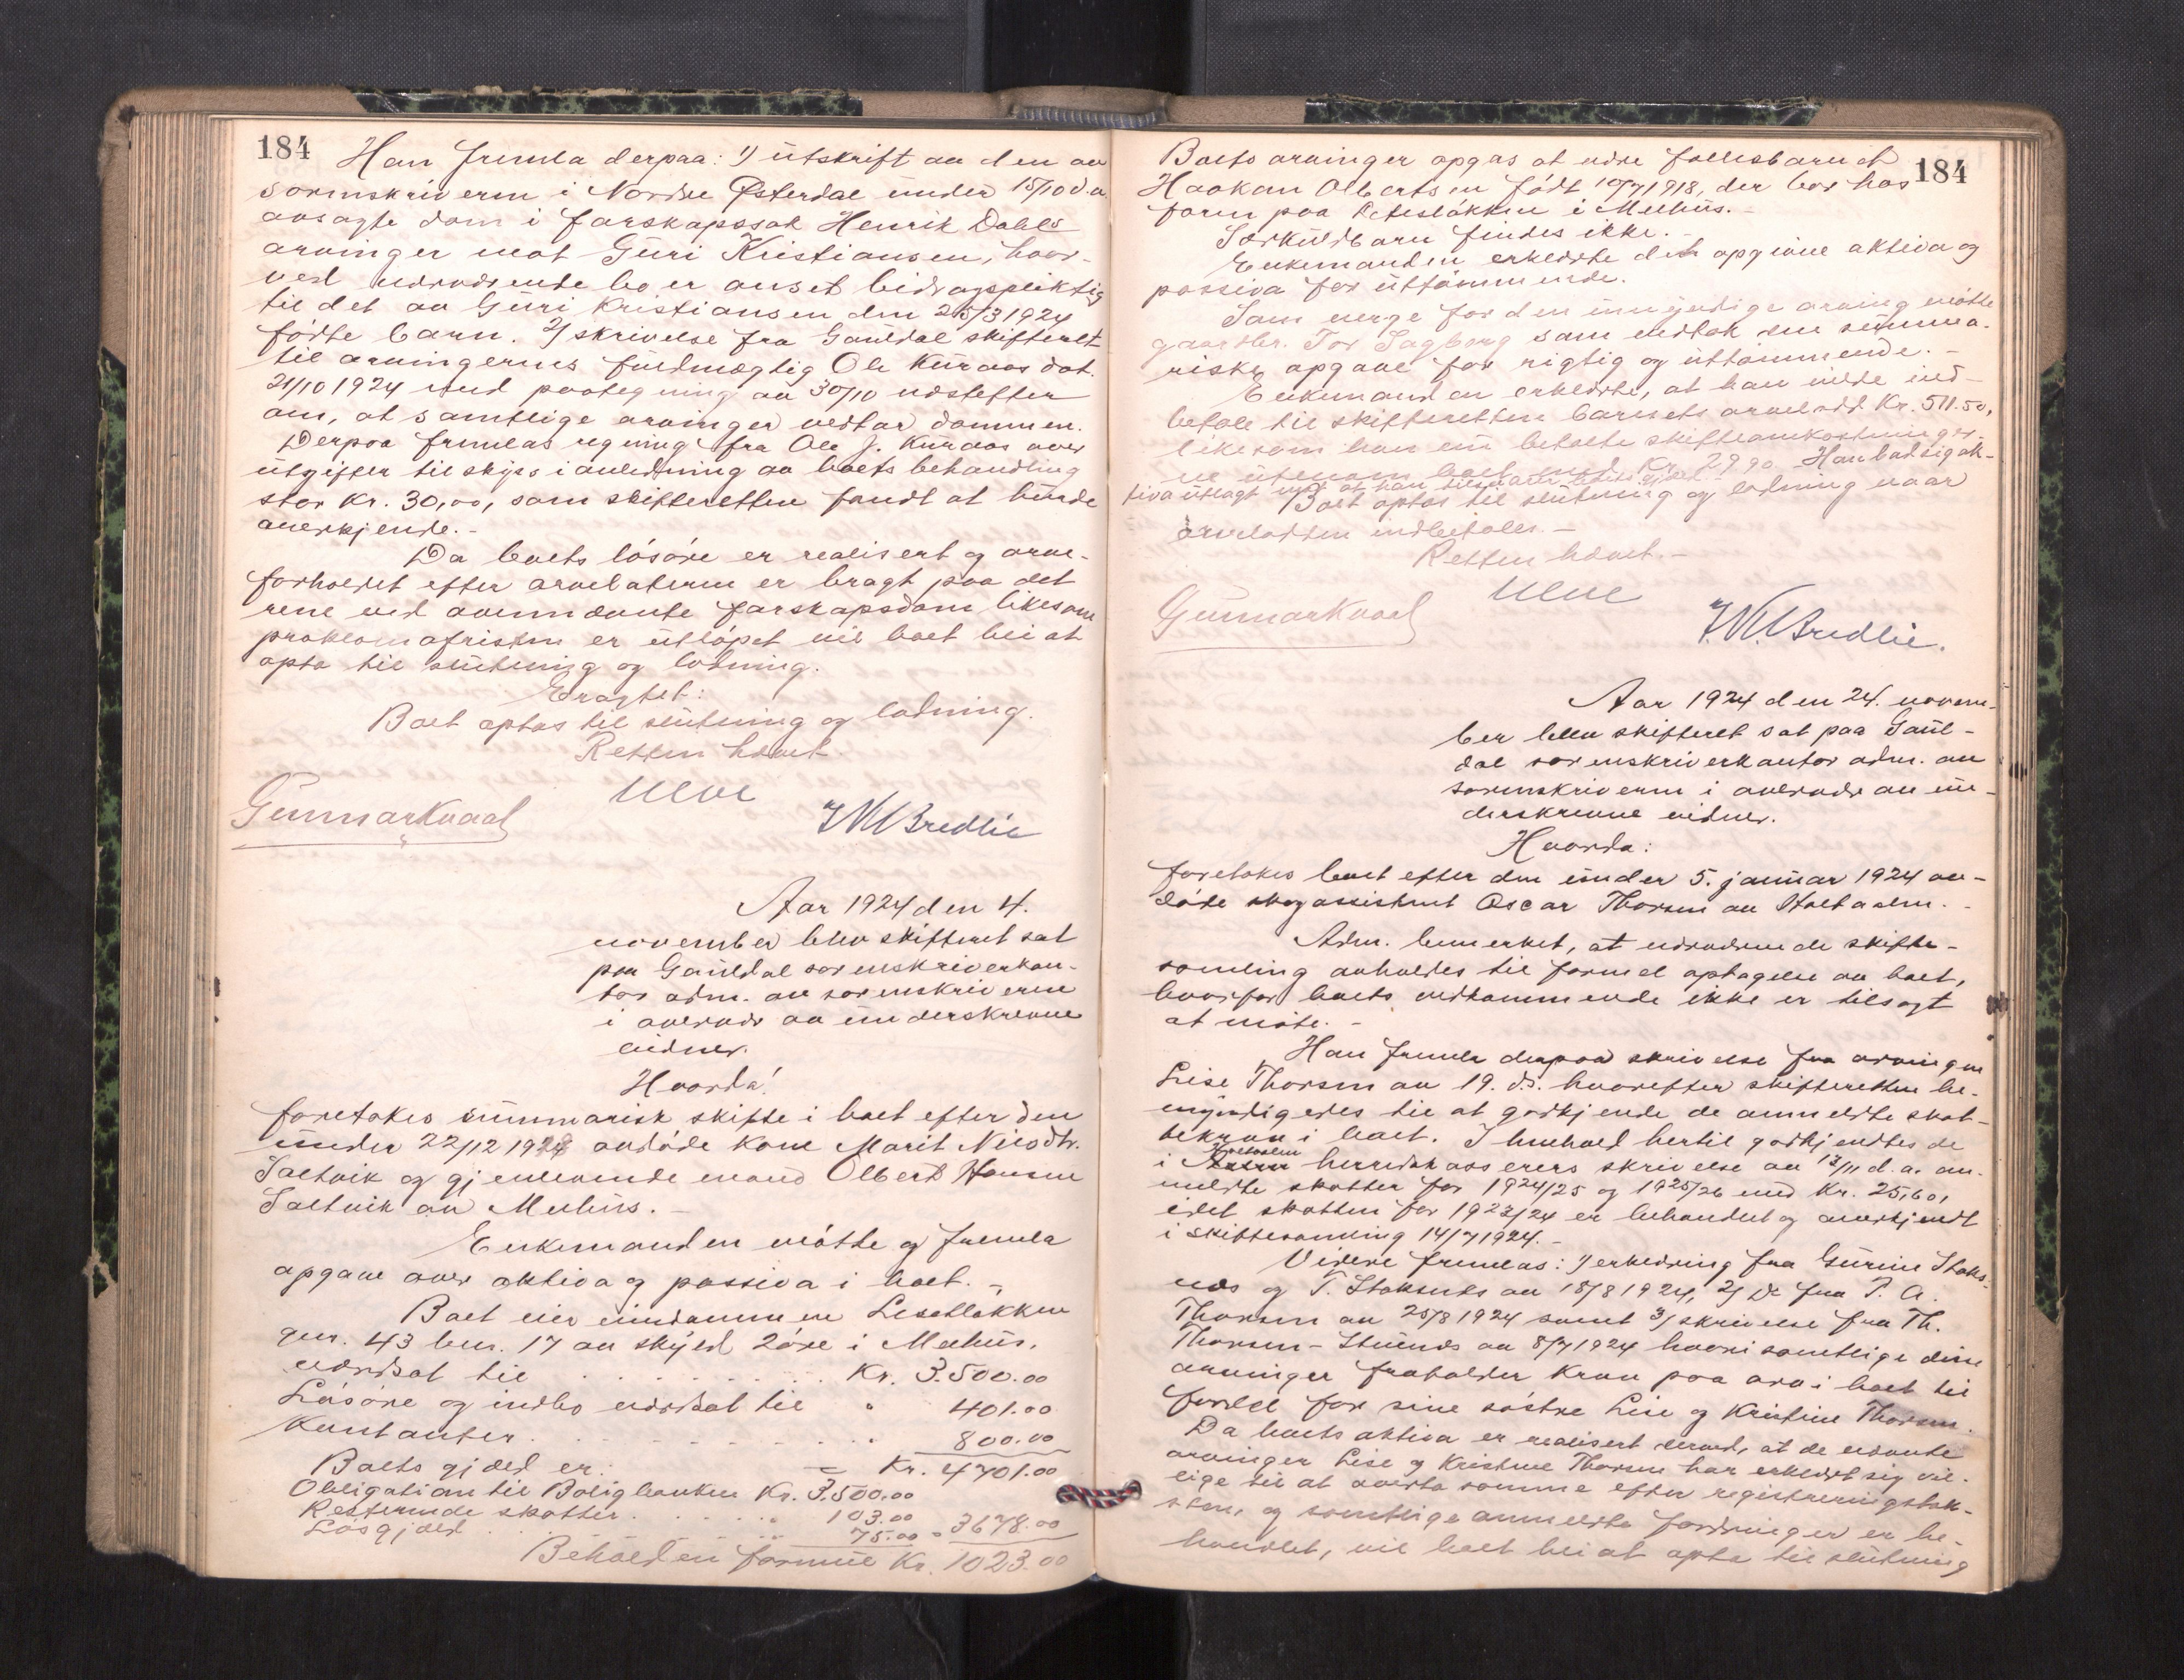 184
Han fremla derpaa: 1) utskrift av den av
sorenskriveren i Nordre Østerdal under 15/10 d.a.
avsagte dom i farskapssak Henrik Dahls
arvinger mot Guri Kristiansen, hvor-
ved nærværende bo er anset bidragspliktig
til det av Guri Kristiansen den 25/3 1924
fødte barn. 2) skrivelse fra Gauldal skifteret
til arvingernes fuldmægtig Ole Kuraas dat.
21/10 1924 med paategning av 30/10 næstefter
om, at samtlige arvinger vedtar dommen.
Derpaa fremlas regning fra Ole J. Kuraas over
utgifter til skyss i anledning av boets behandling
stor Kr. 30,00, som skifteretten fandt at burde
anerkjende.-
Da boets løsøre er realisert og arve-
forholdet efter arvelateren er bragt paa det
rene ved ovennævnte farskapsdom likesom
proklamafristen er utløpet vil boet bli at
opta til slutning og lodning.
Eragtet:
Boet optas til slutning og lodning.
Retten hævet.
Ulve
Gunnar Kvaal
J. M. Bredlie
Aar 1924 den 4.
november blev skifteret sat
paa Gauldal sorenskriverkon-
tor adm. av sorenskriveren
i overvær av underskrevne
vidner.
Hvorda!
foretokes summarisk skifte i boet efter den
under 22/12 1924 avdøde kone Marit Nilsdtr.
Saltvik og gjenlevende mand Olbert Hansen
Saltvik av Melhus.-
Enkemanden møtte og fremla
opgave over aktiva og passiva i boet.-
Boet eier eiendommen Liseløkken
gnr. 43 bnr. 17 av skyld 2 øre i Melhus,
værdsat til . . . . . . . Kr. 3.500.00
Løsøre og indbo værdsat til " 401.00
Kontanter . . . . . . . " 800.00
Kr. 4701.00
Boets gjæld er:
Obligation til Boligbanken Kr. 3.500.00
Resterende skatter . . . . " 103.00
Løsgjæld . . . . . . 75.00 " 3678.00
Beholden formue Kr. 1023.00
184
Boets arvinger opgas at være fællesbarnet
Haakon Olbertsen født 10/7 1918, der bor hos
faren paa i Melhus.-
Særkuldbarn findes ikke.-
Enkemanden erklærte den opgivne aktiva og
passiva for uttømmende.
Som verge for den umyndige arving møtte
gaardbr. Tor Sagberg som vedtok den summa-
riske opgave for rigtig og uttømmende.-
Enkemanden erklærte, at han vilde ind-
betale til skifteretten barnets arvelodd Kr. 511.50,
likesom han nu betalte skifteomkostninger
ne utenom boet med Kr. 29.90. Han bad sig ak-
tiva utlagt mot at han tilsvarer boets gjæld.
Boet optas til slutning og lodning naar
arvelodden indbetales.-
Retten hævet.-
Ulve
Gunnar Kvaal
J. M. Bredlie.
Aar 1924 den 24. novem-
ber blev skifteret sat paa Gaul-
dal sorenskriverkontor adm. av
sorenskriveren i overvær av un-
derskrevne vidner.
Hvorda:
foretokes boet efter den under 5. januar 1924 av-
døde skogassistent Oscar Thorsen av Holtaalen.-
Adm. bemerket, at nærværende skifte-
samling avholdes til formel optagelse av boet,
hvorfor boets vedkommende ikke er tilsagt
at møte.-
Han fremla derpaa skrivelse fra arvingen
Lise Thorsen av 19. ds. hvorefter skifteretten be-
myndigedes til at godkjende de anmeldte skat-
tekrav i boet. I henhold hertil godkjendtes de
i Holtaalen herredskasserers skrivelse av 13/11 d.a. an-
meldte skatter for 1924/25 og 1925/26 med Kr. 25,60,
idet skatten for 1923/24 er behandlet og anerkjendt
i skiftesamling 14/7 1924.-
Videre fremlas: 1) erklæring fra Gurine Stoks-
næs og T. Stoksnes av 18/8 1924, 2) Do fra P. A.
Thorsen av 25/8 1924 samt 3) skrivelse fra Th.
Thorsen- av 8/7 1924 hvori samtlige disse
arvinger frafalder krav paa arv i boet til
fordel for sine søstre Lise og Kristine Thorsen.
Da boets aktiva er realisert derved, at de nævnte
arvinger Lise og Kristine Thorsen har erklæret sig vil-
lige til at overta samme efter registreringstak-
sten, og samtlige anmeldte fordringer er be-
handlet, vil boet bli at opta til slutning